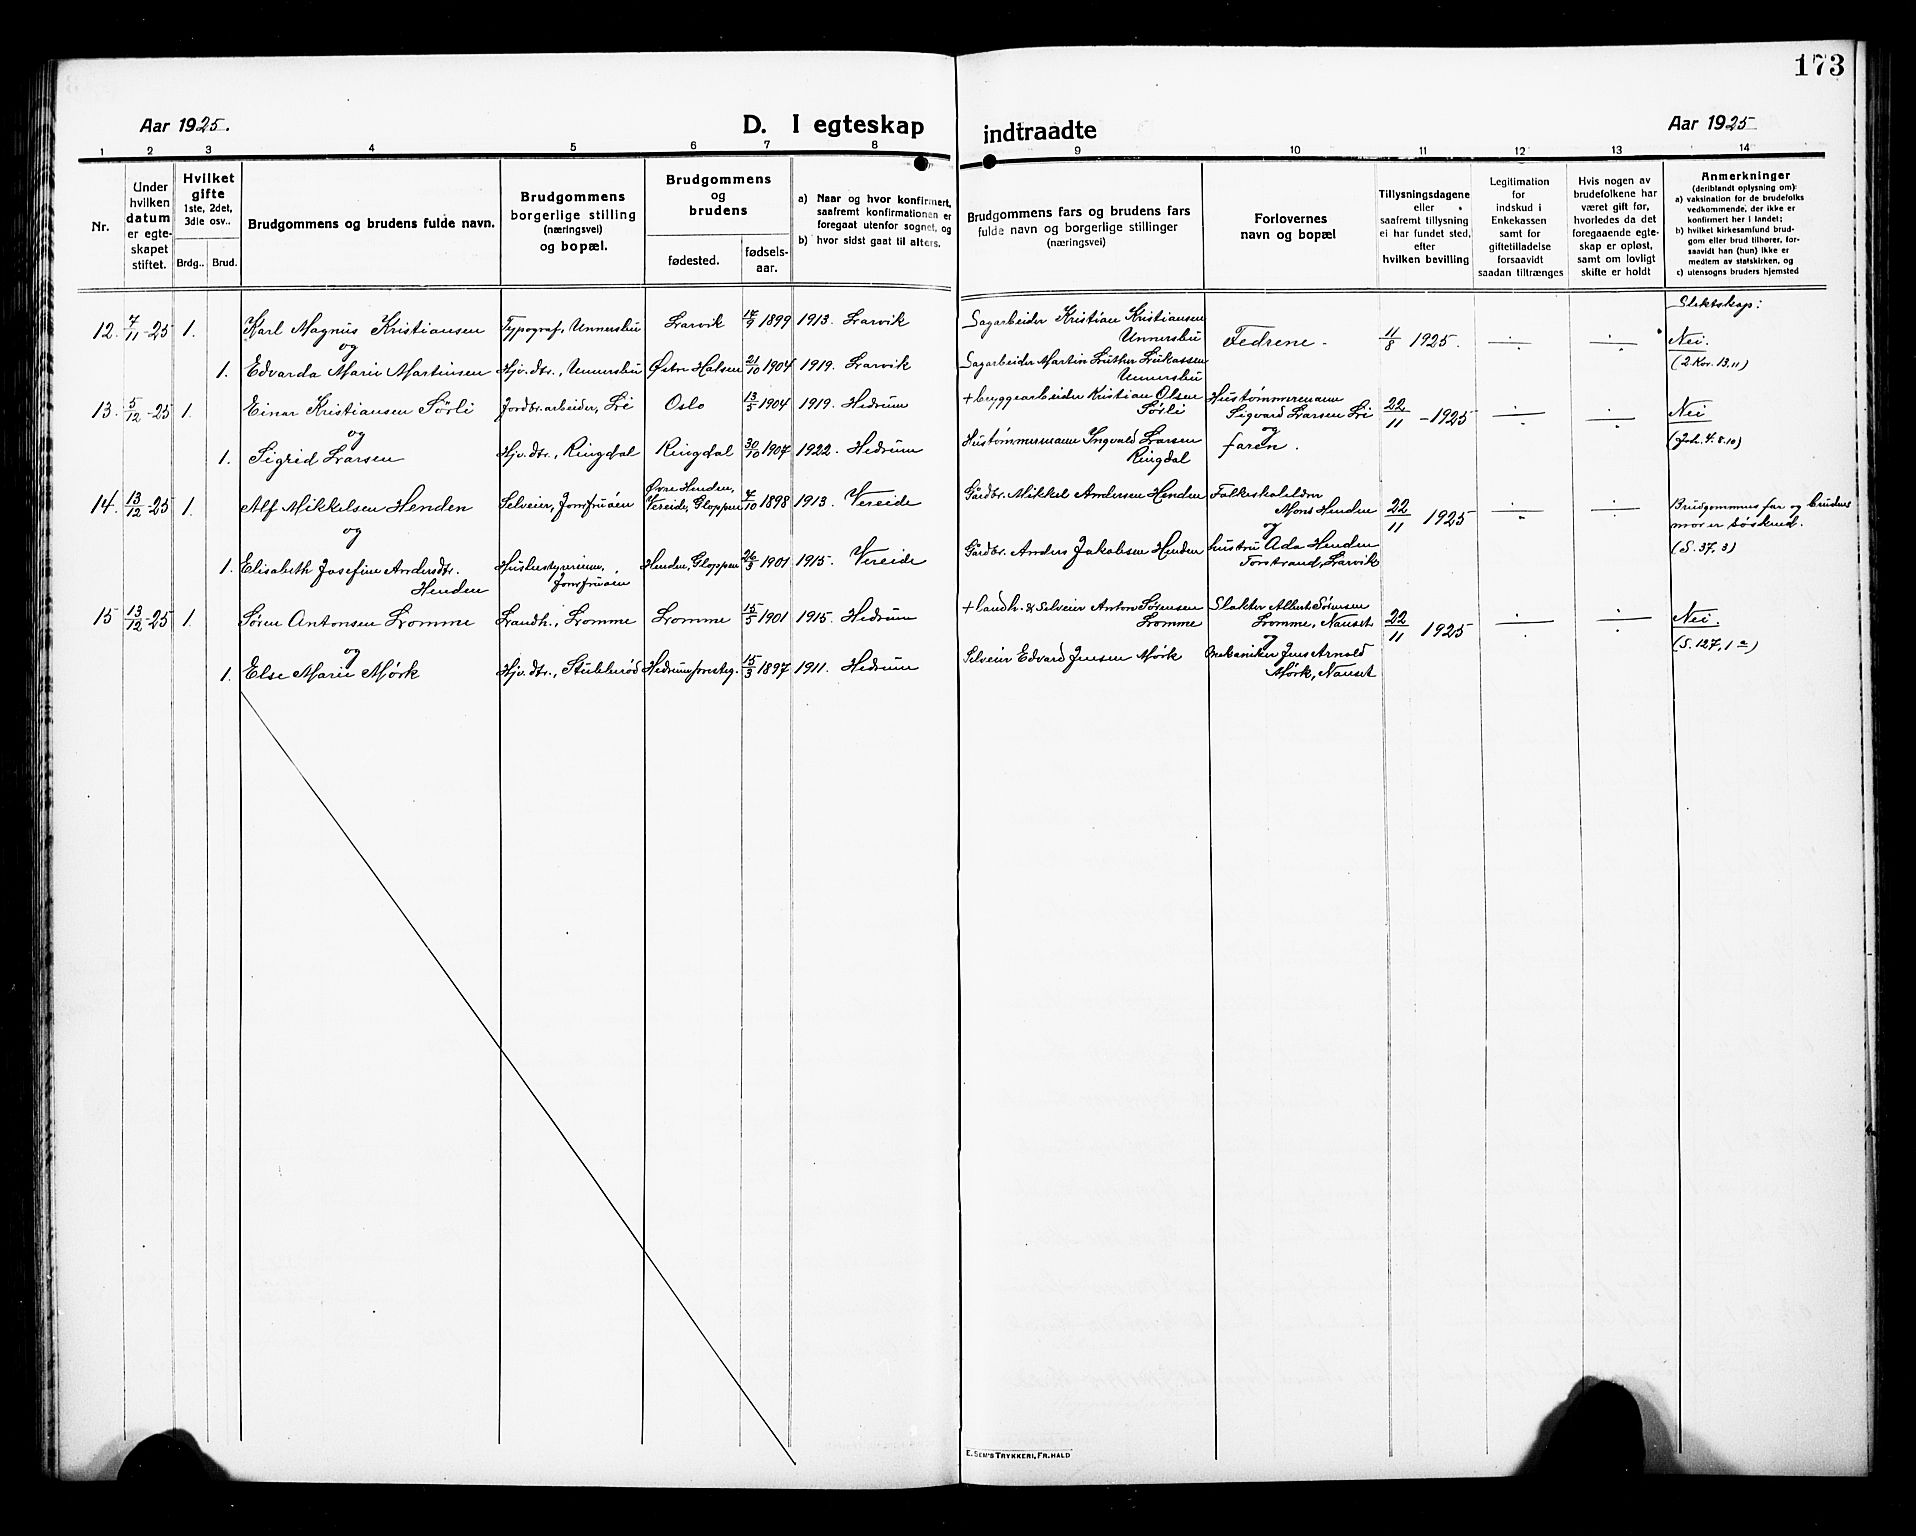 173
Aar 1925.
D. I egteskap
indtraadte
Aar 1925
1 2 3 4 5 6 7 8 9 10 11 12 13 14
Nr.
Under
hvilken
datum
er egte-
skapet
stiftet.
Hvilket
gifte
1ste, 2det,
3die osv..
Brdg.. Brud.
Brudgommens og brudens fulde navn.
Brudgommens
borgerlige stilling
(næringsvei)
og bopæl.
Brudgommens
og
brudens
fødested.
fødsels-
aar.
a) Naar og hvor konfirmert,
saafremt konfirmationen er
foregaat utenfor sognet, og
b) hvor sidst gaat til alters.
Brudgommens fars og brudens fars
fulde navn og borgerlige stillinger
(næringsvei)
Forlovernes
navn og bopæl
Tillysningsdagene
eller
saafremt tillysning
ei har fundet sted,
efter
hvilken bevilling
Legitimation
for
indskud i
Enkekassen
samt for
giftetilladelse
forsaavidt
saadan tiltrænges
Hvis nogen av
brudefolkene har
været gift før,
hvorledes da det
foregaaende egte-
skap er opløst,
samt om lovligt
skifte er holdt
Anmerkninger
(deriblandt oplysning om):
a) vaksination for de brudefolks
vedkommende, der ikke er
konfirmert her i landet;
b) hvilket kirkesamfund brud-
gom eller brud tilhører, for-
saavidt han (hun) ikke er
medlem av statskirken, og
c) utensogns bruders hjemsted
Slektskap:
12. 7/11-25 1. Karl Magnus Kristiansen Typograf, Unnersbu Larvik 17/9 1899 1913. Larvik Sagarbeider Kristian Kristiansen
Unnersbu Fedrene. 11/8 1925. Nei.
og
1. Edvarda Marie Martinsen Hjv. dtr., Unnersbu Østre Halsen 21/10 1904 1919. Larvik Sagarbeider Martin Luther Lukassen
Unnersbu (2 Kor. 13,11)
13. 5/12-25 1. Einar Kristiansen Sørli Jordbr. arbeider, Lie Oslo 13/5 1904 1919. Hedrum + byggearbeider Kristian Olsen
Sørli Hustømmermann
Sigvard Larsen Lie 22/11 - 1925 Nei
og og
1. Sigrid Larsen Hjv. dtr., Ringdal Ringdal 30/10 1904 1922. Hedrum Hustømmermann Ingvald Larsen
Ringdal faren. (Joh. 4. 8. 10)
14. 13/12-25 1. Alf Mikkelsen Henden Selveier, Jomfruøen Øvre Henden,
Vereide, Gloppen 7/10 1898 1913. Vereide Gårdbr. Mikkel Andersen Henden Folkeskolelærer
Mons Henden 22/11 1925 Brudgommens far og brudens
mor er søskend.
og og
1. Elisabeth Josefine Andersdtr.
Henden Husbestyrerinne,
Jomfruøen Henden, Gloppen 26/3 1901 1915. Vereide Gårdbr. Anders Jakobsen Henden hustru Ada Henden
Torstrand, Larvik (S. 37, 3)
15 13/12-25 1. Søren Antonsen Lromme Landh., Lromme Lromme 15/5 1901 1915. Hedrum + landh. & Selveier Anton Sørensen
Lromme Slakter Albert Sørensen
Lromme, Nanset 22/11 1925 Nei.
og og
1. Else Marie Mørk Hjv. dtr., Stubberød Hedrum presteg. 15/3 1897 1911. Hedrum Selveier Edvard Jensen Mørk Mekaniker Jens Arnold
Mørk, Nanset (S. 127, 1 a)
E. SEM'S TRYKKERI, FR.HALD